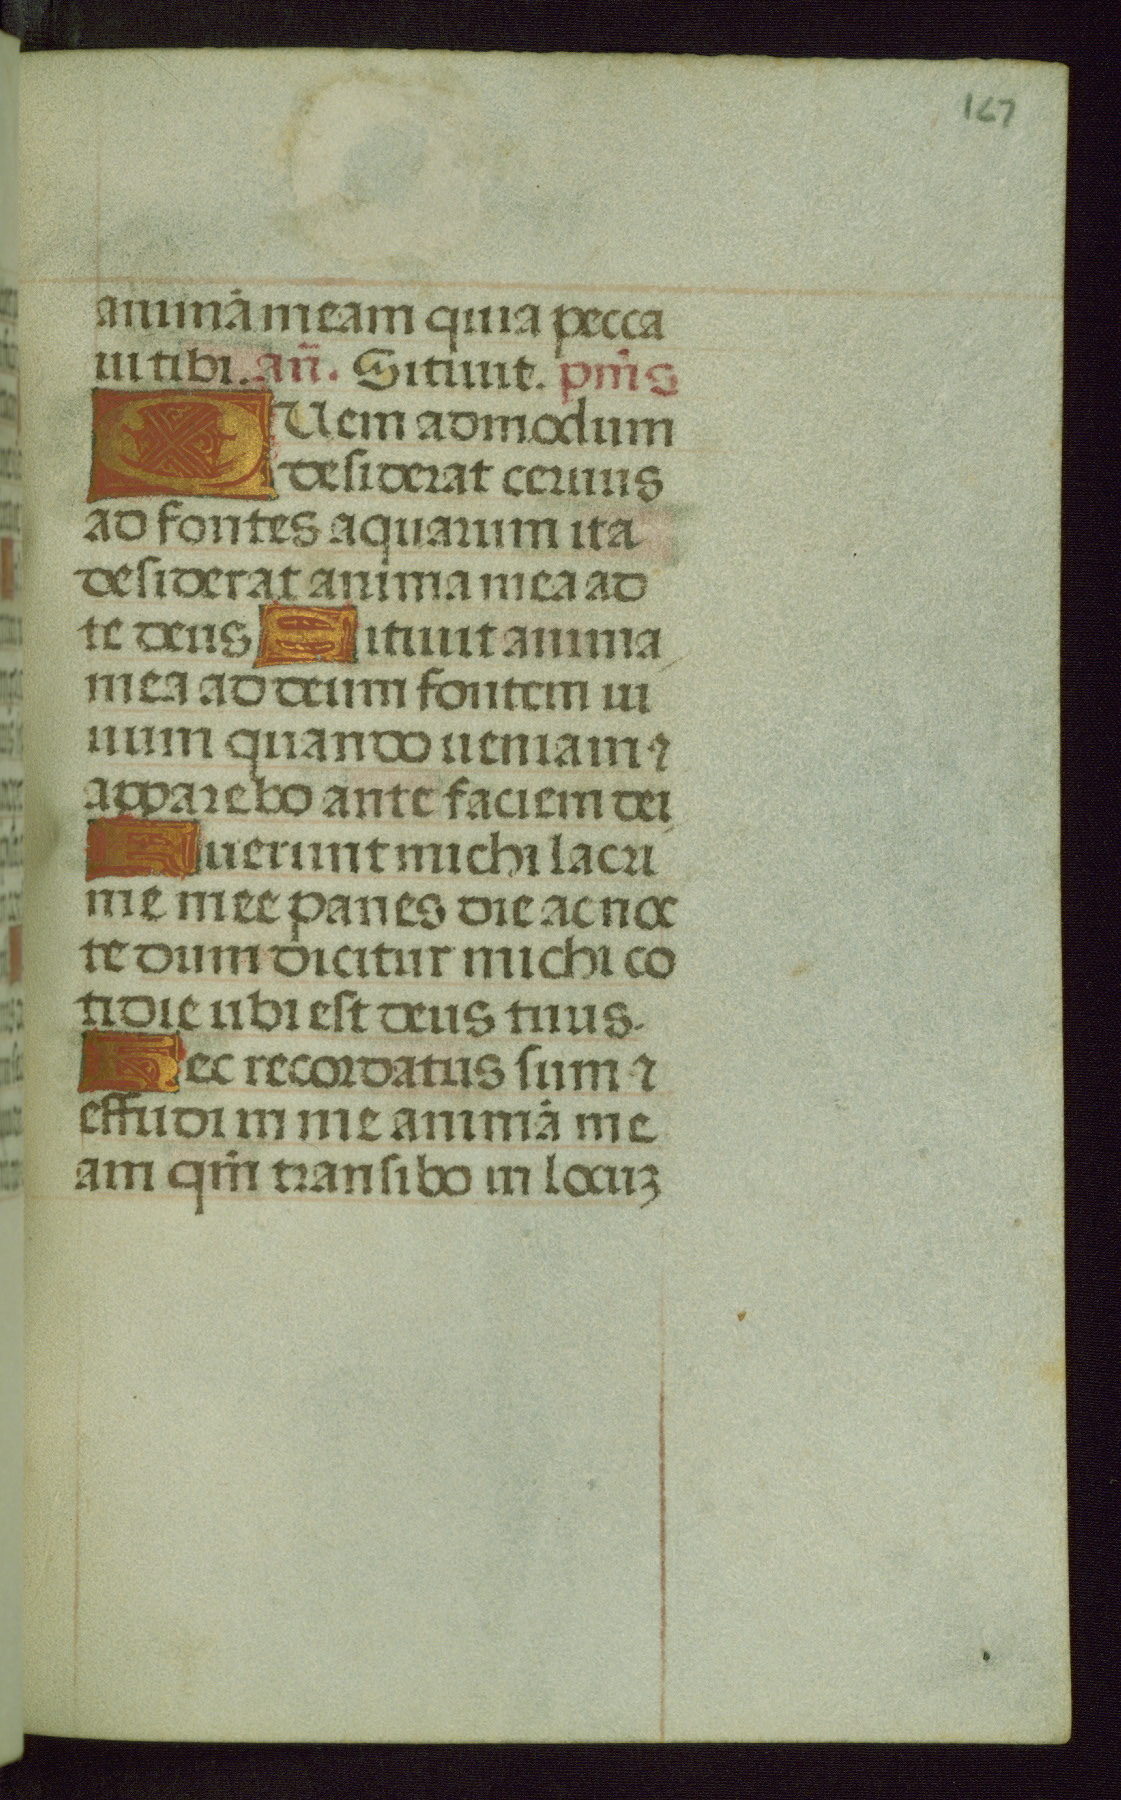 167
animā meam quia pecca
ui tibi. añ. Sitiuit. pm̄s
QUem admodum
desiderat ceruus
ad fontes aquarum ita
desiderat anima mea ad
te deus Sitiuit anima
mea ad deum fontem ui
uum quando ueniam ⁊
apparebo ante faciem dei
Fuerunt michi lacri
me mee panes die ac noc
te dum dicitur michi co
tidie ubi est deus tuus.
Hec recordatus sum ⁊
effudi in me animā me
am qm̄ transibo in locuꝫ